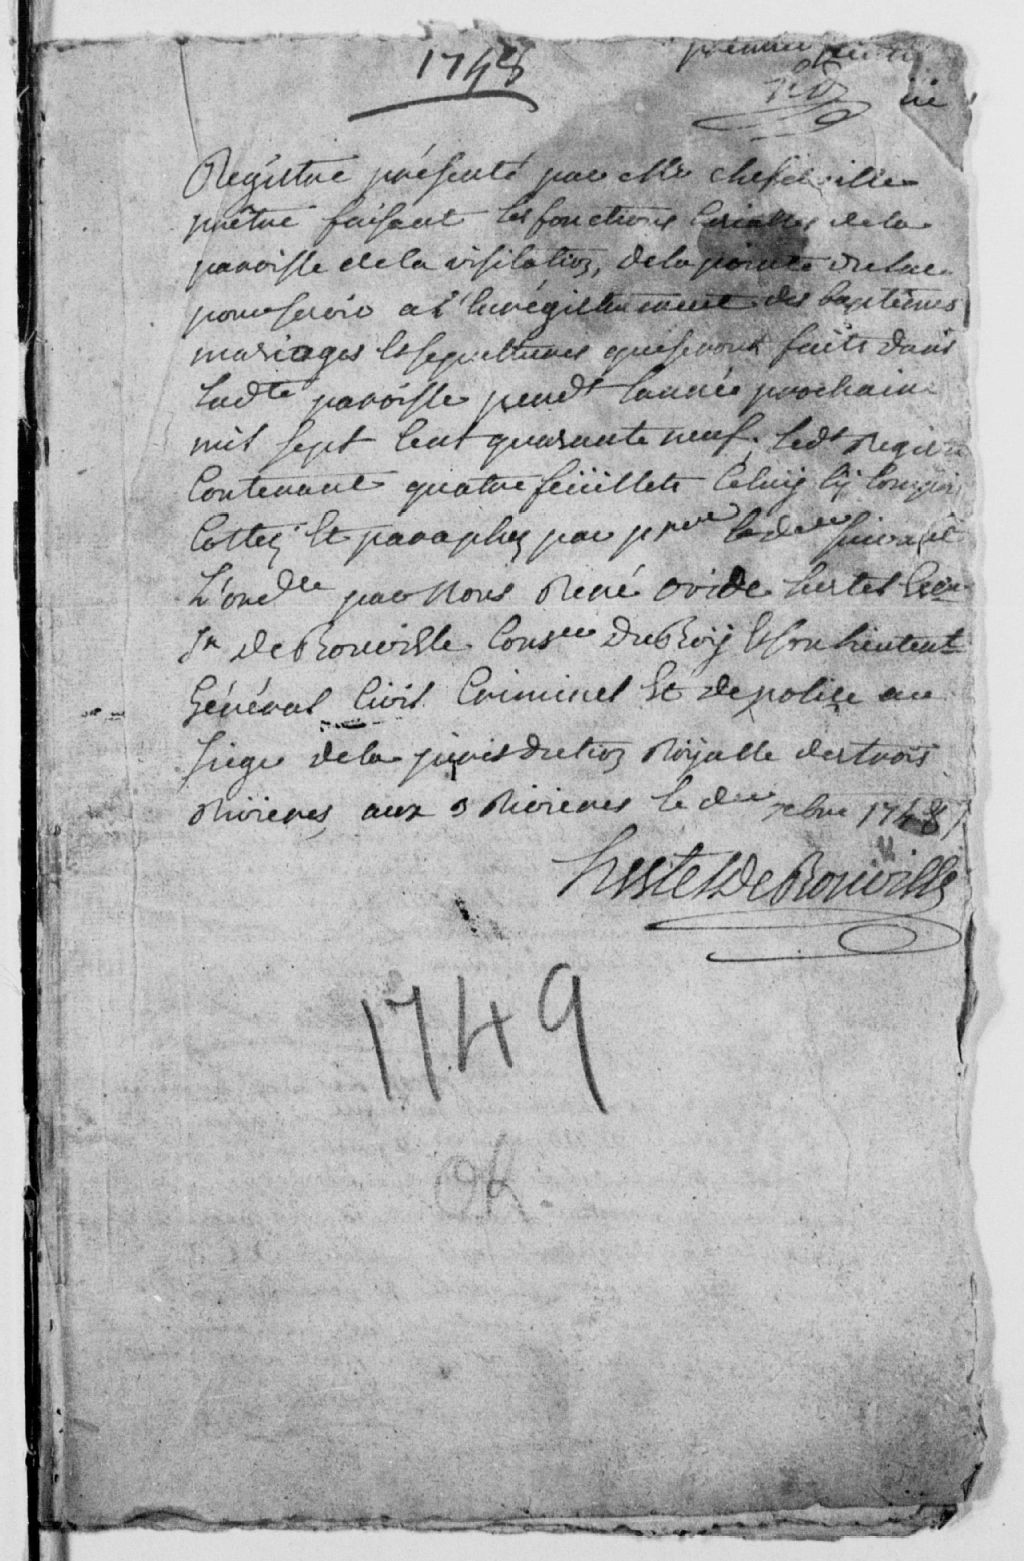 1748
premier feuillet
Registre présenté par Mr chefdeville
prêtre faisant les fonctions Curialles de la
paroisse de la visitation, de la pointe du lac
pour servir a L'enrégistrement des baptêmes
mariages et sepultures qui seront faits dans
Ladte paroisse pendt Lannée prochaine
mil sept Cent quarante neuf, Ledt Registre
Contenant quatre feüillets Celuy cy Compris
Cottez et paraphez par pmer et der suivant
L'ordre par Nous René ovide hertel Ecuier
Sr de Rouville Conser du Roy et son Lieutent
Général Civil Criminel et de police au
siege de la jurisdiction Royalle des trois
Rivieres, aux 3 Rivieres le der xbre 1748 /
hertel De Rouville
1749
OK.